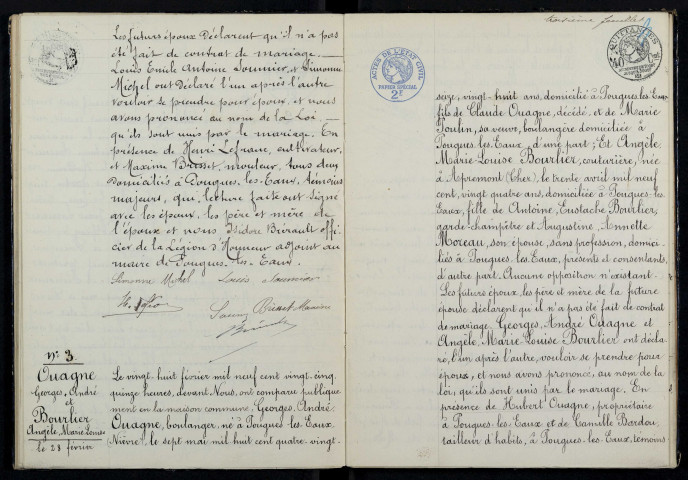 Les futurs époux Déclarent qu'il n'a pas
été fait de contrat de mariage.
Louis Emile Antoine Saunier, et Simonne
Michel ont Déclaré l'un après l'autre
vouloir se prendre pour époux et nous
avons prononcé au nom de la Loi
qu'ils sont unis par le mariage. En
présence de Henri Lefranc, cultivateur,
et Maxime Brisset, mouleur, tous deux
Domiciliés à Pougues-les-Eaux, témoins
majeurs, qui, lecture faite ont signé
avec les époux, les père et mère de
l'époux et nous Isidore Brirault offi-
cier de la Légion d'Honneur adjoint au
maire de Pougues-les-Eaux.
Simonne Michel Louis Saunier
N° 3.
Ouagne
Georges, André
et
Bourlier
Angèle, Marie-Louise
le 28 février
Le vingt-huit février mil neuf cent vingt-cinq
quinze heures, devant Nous, ont comparu publique-
ment en la maison commune, Georges, André
Ouagne, boulanger, né à Pougues-les-Eaux
Nièvre, le sept mai mil huit cent quatre-vingt-
ACTES DE L'ÉTAT CIVIL
PAPIER SPÉCIAL
2F
QUITTANCES
seize, vingt-huit ans, domicilié à Pougues-les-Eaux
fils de Claude Ouagne, décédé, et de Marie
Joulin, sa veuve, boulangère domiciliée à
Pougues-les-Eaux, d'une part; Et Angèle,
Marie-Louise Bourlier, couturière, née
à Apremont (Cher), le trente avril mil neuf
cent, vingt-quatre ans, domiciliée à Pougues-les-
Eaux, fille de Antoine, Eustache Bourlier,
garde-champêtre et Augustine, Annette
Moreau, son épouse, sans profession, domici-
liés à Pougues-les-Eaux, présents et consentants,
d'autre part. Aucune opposition n'existant.
Les futurs époux, les père et mère de la future
épouse déclarent qu'il n'a pas été fait de contrat
de mariage. Georges, André Ouagne et
Angèle, Marie-Louise Bourlier ont décla-
ré, l'un après l'autre, vouloir se prendre pour
époux, et nous avons prononcé, au nom de la
loi, qu'ils sont unis par le mariage. En
présence de Hubert Ouagne, propriétaire
à Pougues-les-Eaux, et de Camille Bardou,
tailleur d'habits, à Pougues-les-Eaux, témoins